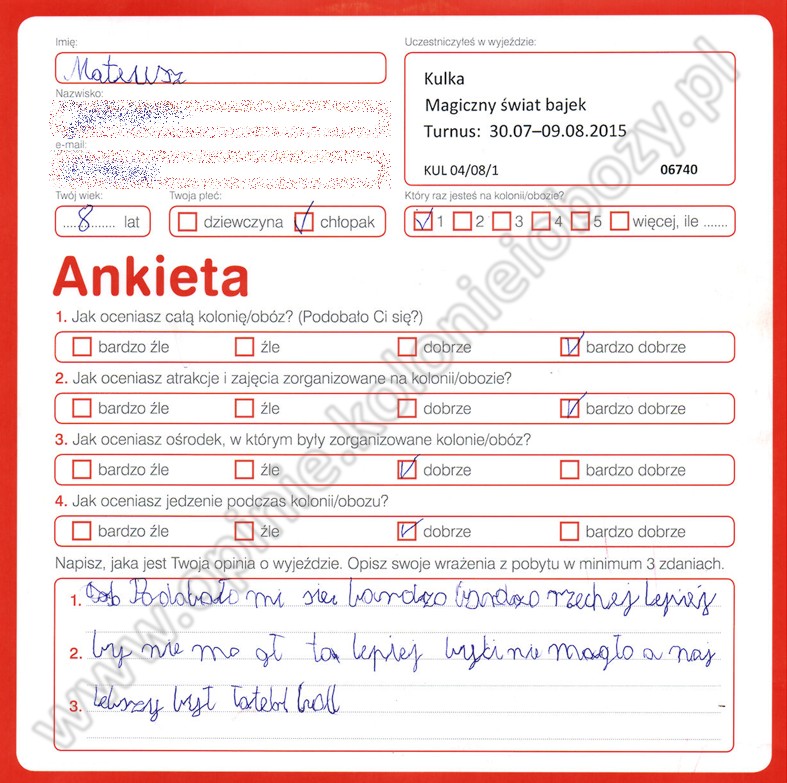 Imię:
Mateusz
Nazwisko:
e-mail:
Twój wiek:
8 lat
Twoja płeć:
dziewczyna chłopak
Uczestniczyłeś w wyjeździe:
Kulka
Magiczny świat bajek
Turnus: 30.07–09.08.2015
KUL 04/08/1 06740
Który raz jesteś na kolonii/obozie?
1 2 3 4 5 więcej, ile .......
Ankieta
1. Jak oceniasz całą kolonię/obóz? (Podobało Ci się?)
bardzo źle źle dobrze bardzo dobrze
2. Jak oceniasz atrakcje i zajęcia zorganizowane na kolonii/obozie?
bardzo źle źle dobrze bardzo dobrze
3. Jak oceniasz ośrodek, w którym były zorganizowane kolonie/obóz?
bardzo źle źle dobrze bardzo dobrze
4. Jak oceniasz jedzenie podczas kolonii/obozu?
bardzo źle źle dobrze bardzo dobrze
Napisz, jaka jest Twoja opinia o wyjeździe. Opisz swoje wrażenia z pobytu w minimum 3 zdaniach.
1. Podobało mi sie bardzo bardzo rzechej lepiej
2. by nie mo gł to lepiej być nie magło a naj
3. lebszy był
www.opinie.kolonieiobozy.pl